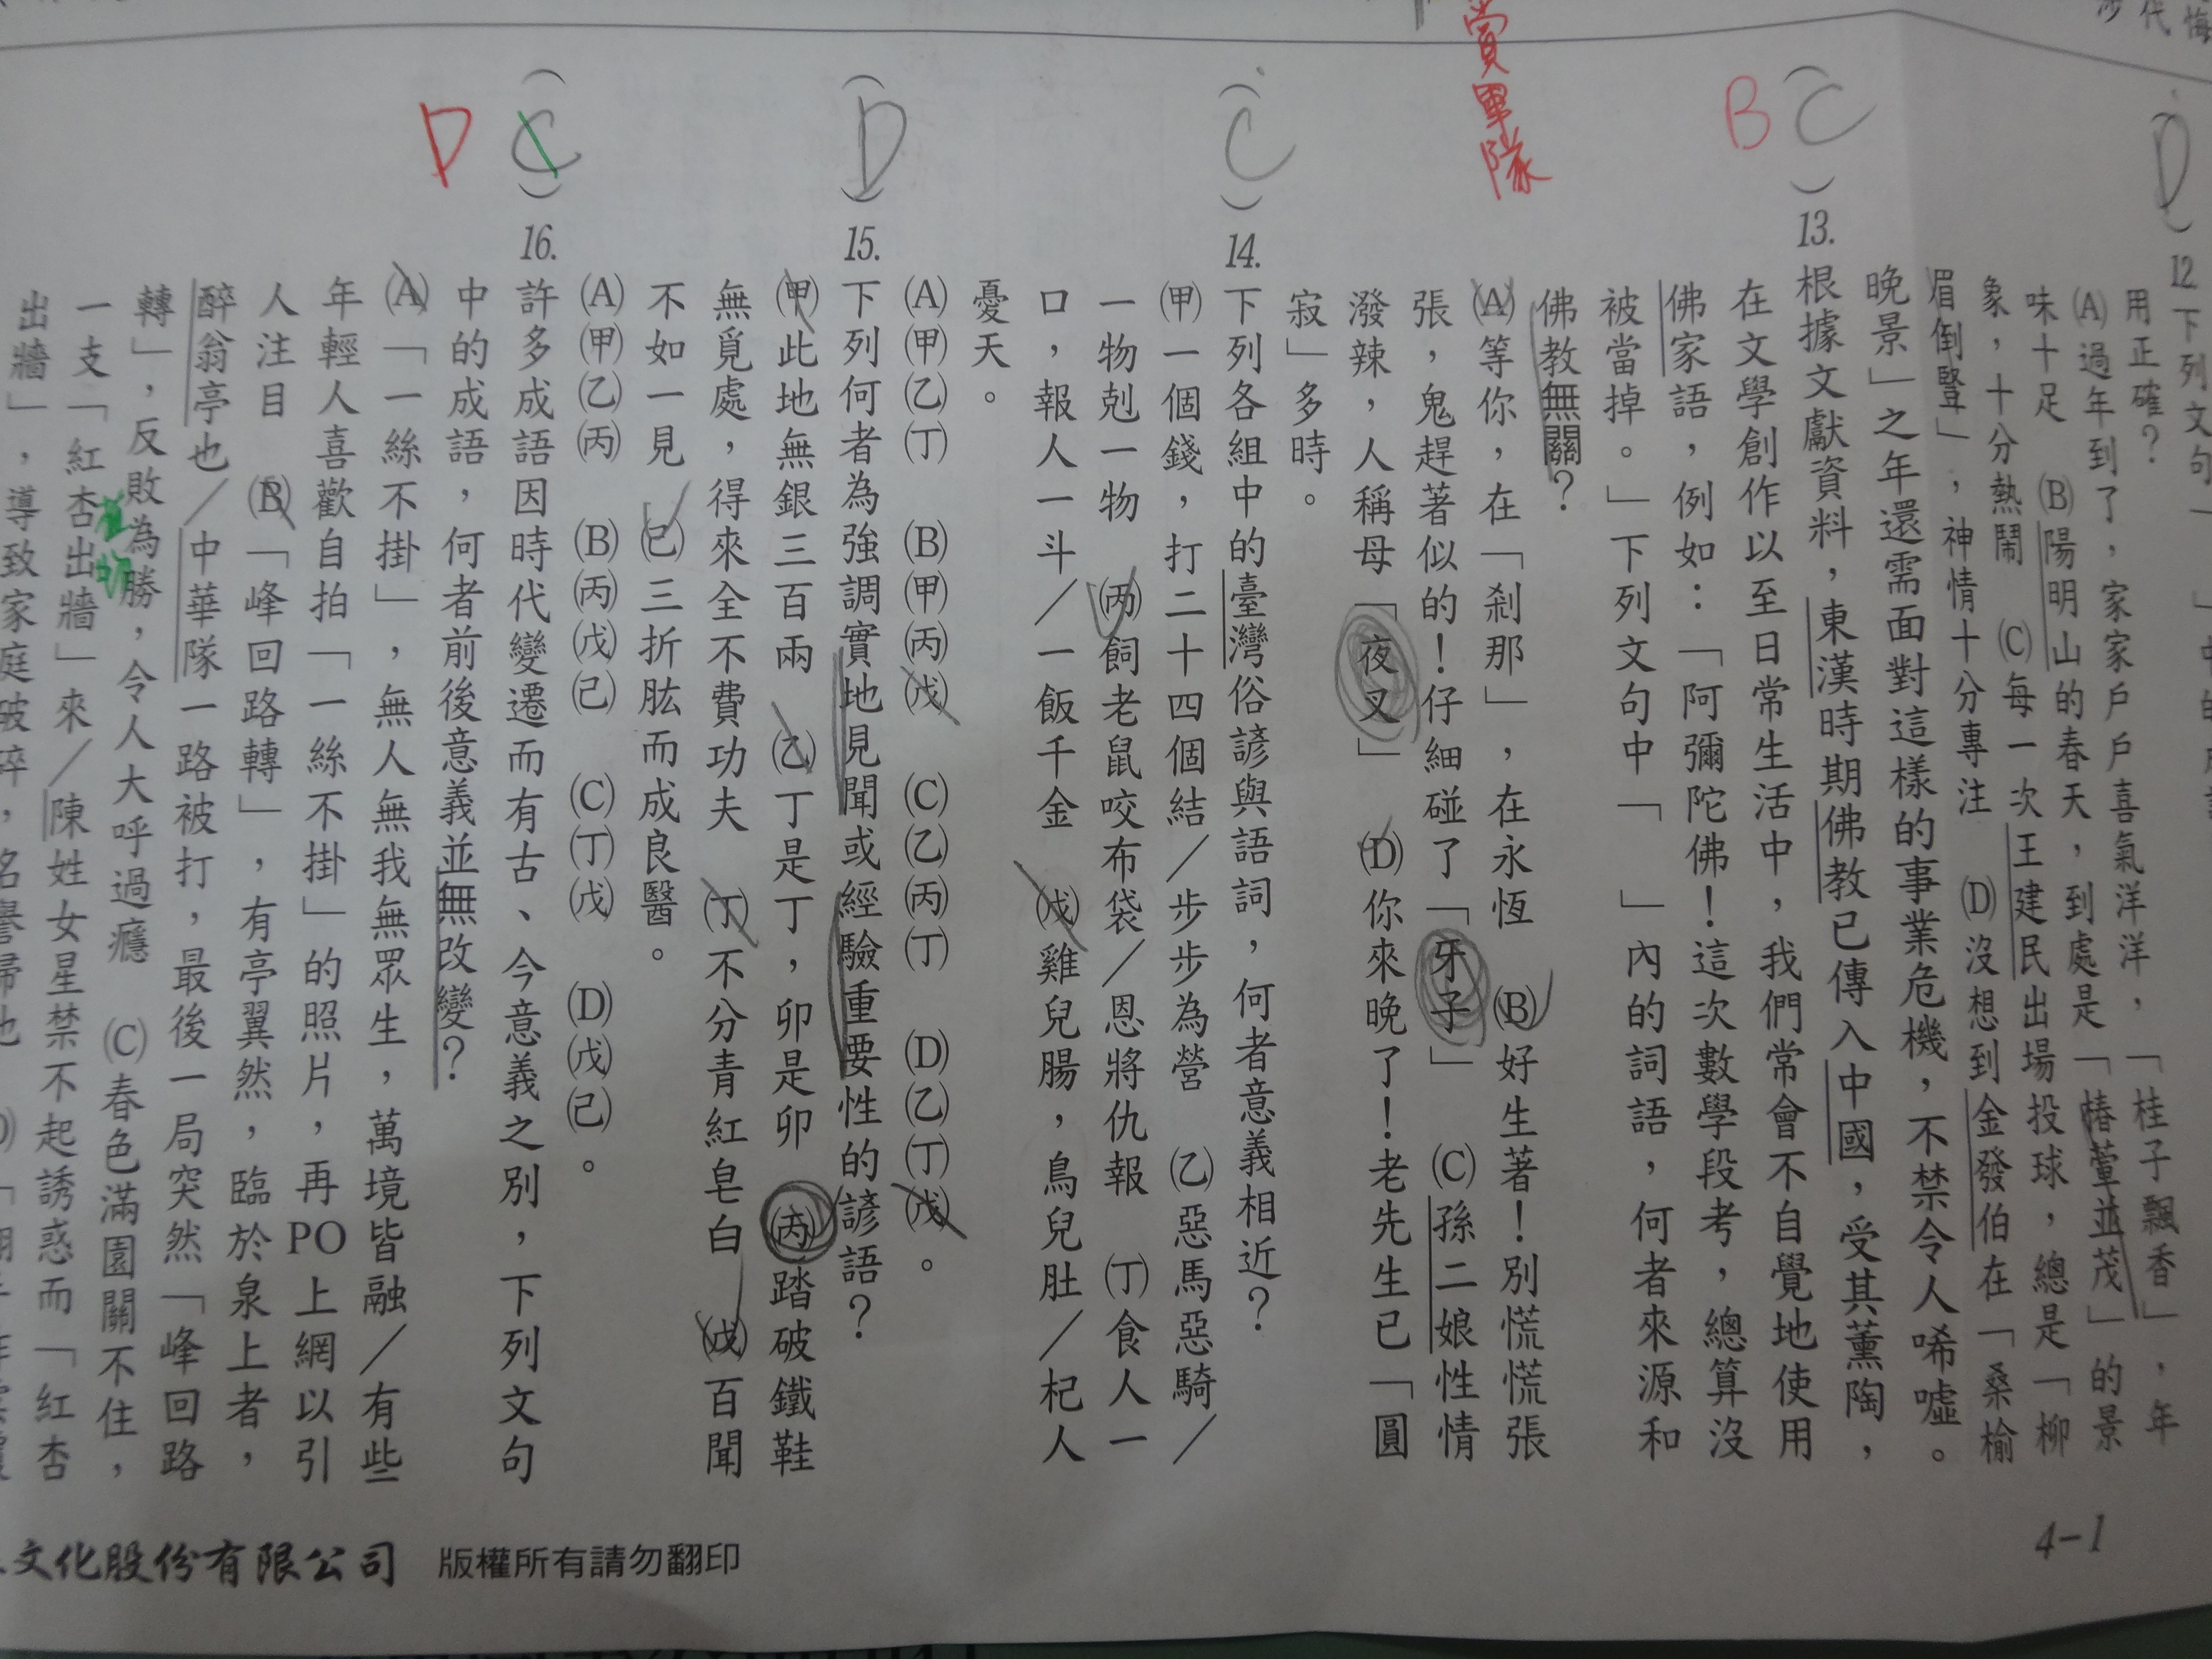 12.下列文句「
用正確?
(A)過年到了,家家戶戶喜氣洋洋,「桂子飄香」,年
味十足 (B)陽明山的春天,到處是「椿萱並茂」的景
象,十分熱鬧 (C)每一次王建民出場投球,總是「柳
眉倒豎」,神情十分專注 (D)沒想到金發伯在「桑榆
晚景」之年還需面對這樣的事業危機,不禁令人唏噓。
D
13.根據文獻資料,東漢時期佛教已傳入中國,受其薰陶,
在文學創作以至日常生活中,我們常會不自覺地使用
佛家語,例如:「阿彌陀佛!這次數學段考,總算沒
被當掉。」下列文句中「 」內的詞語,何者來源和
佛教無關?
(A)等你,在「剎那」,在永恆 (B)好生著!別慌慌張
張,鬼趕著似的!仔細碰了「牙子」 (C)孫二娘性情
潑辣,人稱母「夜叉」 (D)你來晚了!老先生已「圓
寂」多時。
C
B
賞單隊
14.下列各組中的臺灣俗諺與語詞,何者意義相近?
(甲)一個錢,打二十四個結/步步為營 (乙)惡馬惡騎/
一物剋一物 (丙)飼老鼠咬布袋/恩將仇報 (丁)食人一
口,報人一斗/一飯千金 (戊)雞兒腸,鳥兒肚/杞人
憂天。
(A)(甲)(乙)(丁) (B)(甲)(丙)(戊) (C)(乙)(丙)(丁) (D)(乙)(丁)(戊)。
C
15.下列何者為強調實地見聞或經驗重要性的諺語?
(甲)此地無銀三百兩 (乙)丁是丁,卯是卯 (丙)踏破鐵鞋
無覓處,得來全不費功夫 (丁)不分青紅皂白 (戊)百聞
不如一見 (己)三折肱而成良醫。
(A)(甲)(乙)(丙) (B)(丙)(戊)(己) (C)(丁)(戊) (D)(戊)(己)。
D
16.許多成語因時代變遷而有古、今意義之別,下列文句
中的成語,何者前後意義並無改變?
(A)「一絲不掛」,無人無我無眾生,萬境皆融/有些
年輕人喜歡自拍「一絲不掛」的照片,再PO上網以引
人注目 (B)「峰回路轉」,有亭翼然,臨於泉上者,
醉翁亭也/中華隊一路被打,最後一局突然「峰回路
轉」,反敗為勝,令人大呼過癮 (C)春色滿園關不住,
一支「紅杏出牆」來/陳姓女星禁不起誘惑而「紅杏
出牆」,導致家庭破碎,名譽掃地
C
D
文化股份有限公司 版權所有請勿翻印
4-1